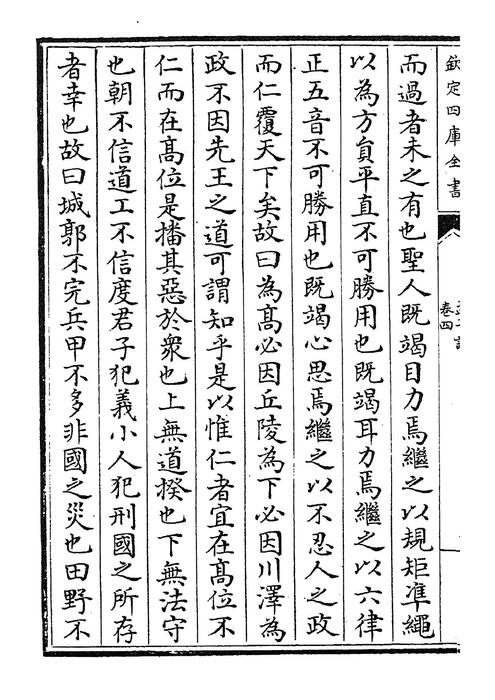 欽定四庫全書
卷四
而過者未之有也聖人既竭目力焉繼之以規矩準繩
以為方員平直不可勝用也既竭耳力焉繼之以六律
正五音不可勝用也既竭心思焉繼之以不忍人之政
而仁覆天下矣故曰為髙必因丘陵為下必因川澤為
政不因先王之道可謂知乎是以惟仁者宜在髙位不
仁而在髙位是播其惡於衆也上無道揆也下無法守
也朝不信道工不信度君子犯義小人犯刑國之所存
者幸也故曰城郭不完兵甲不多非國之災也田野不